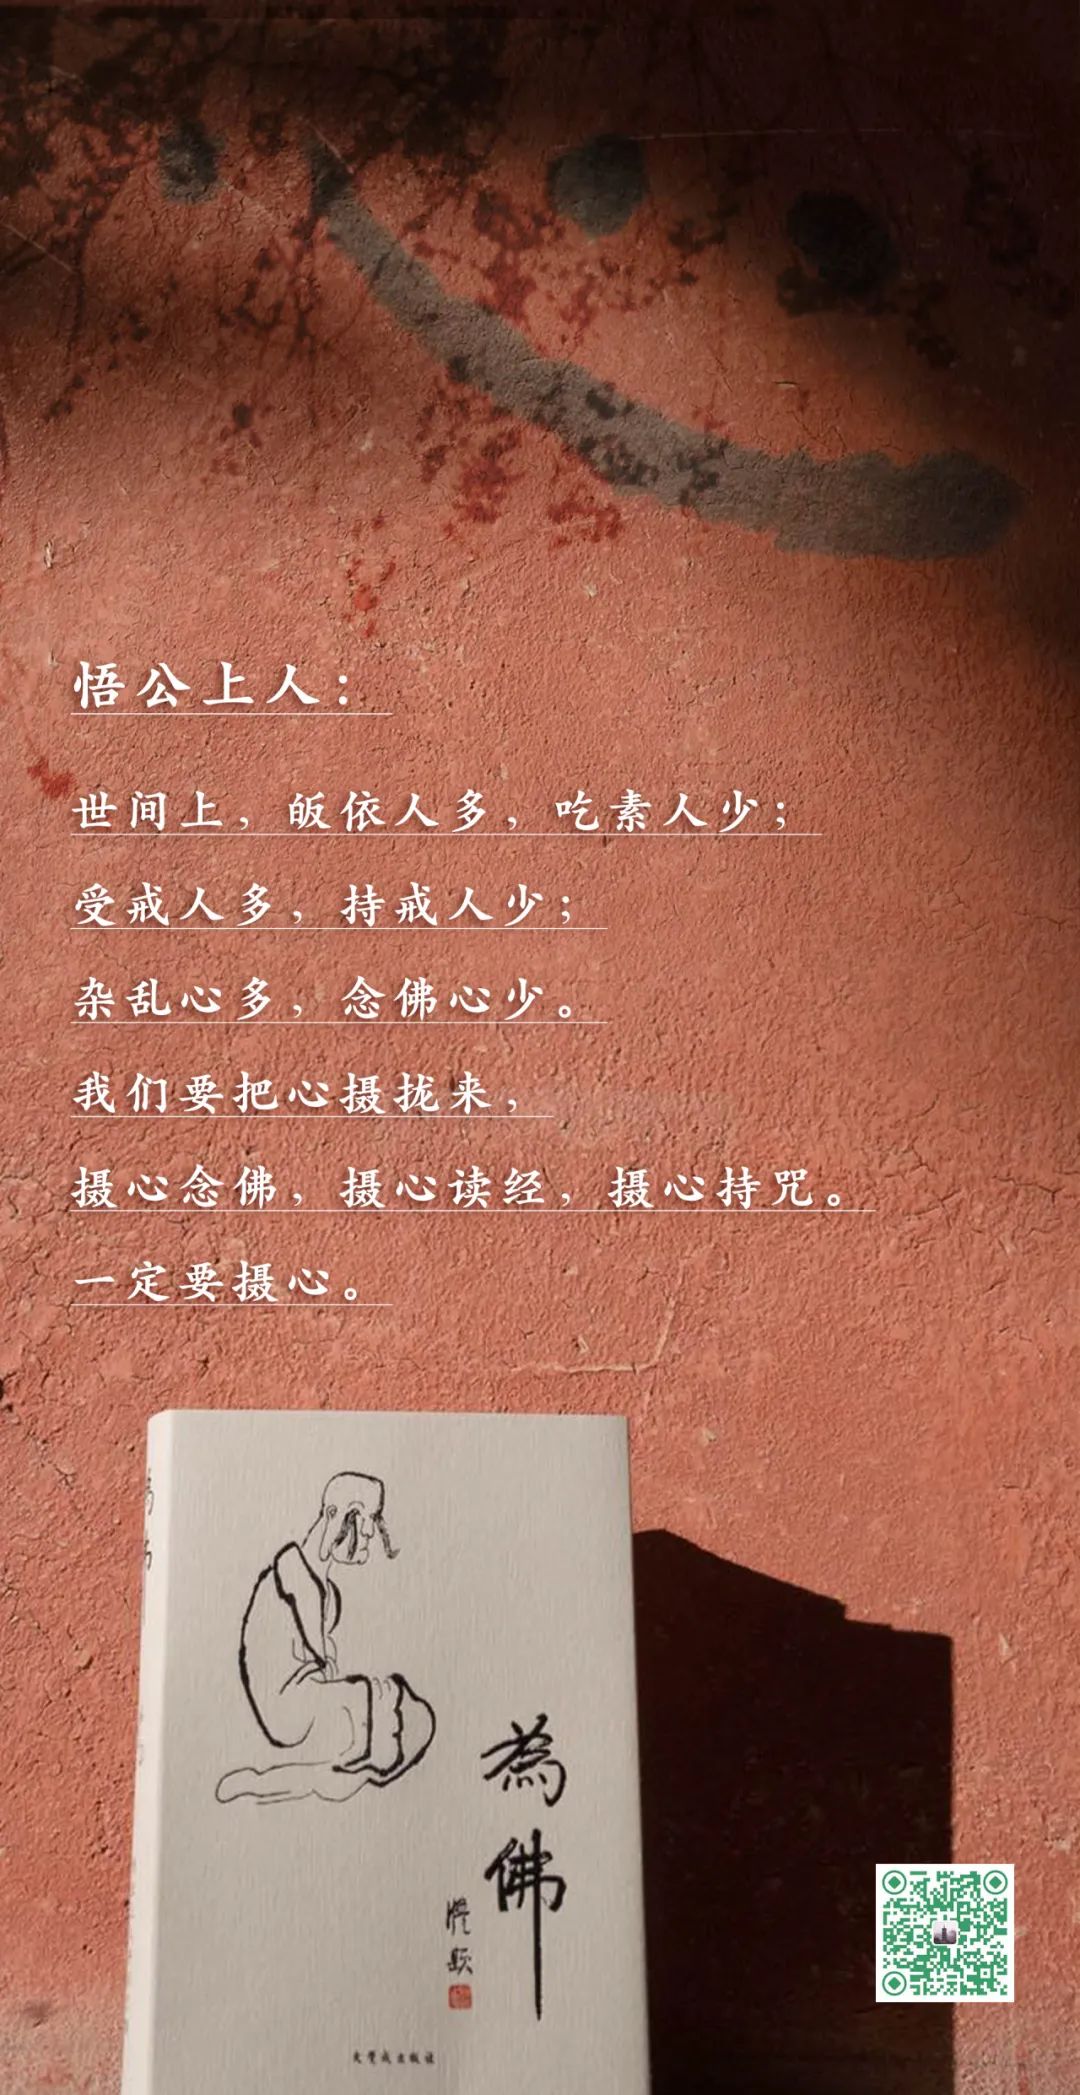 悟公上人：
世间上，皈依人多，吃素人少；
受戒人多，持戒人少；
杂乱心多，念佛心少。
我们要把心摄拢来，
摄心念佛，摄心读经，摄心持咒。
一定要摄心。
為佛
大覺城出版社